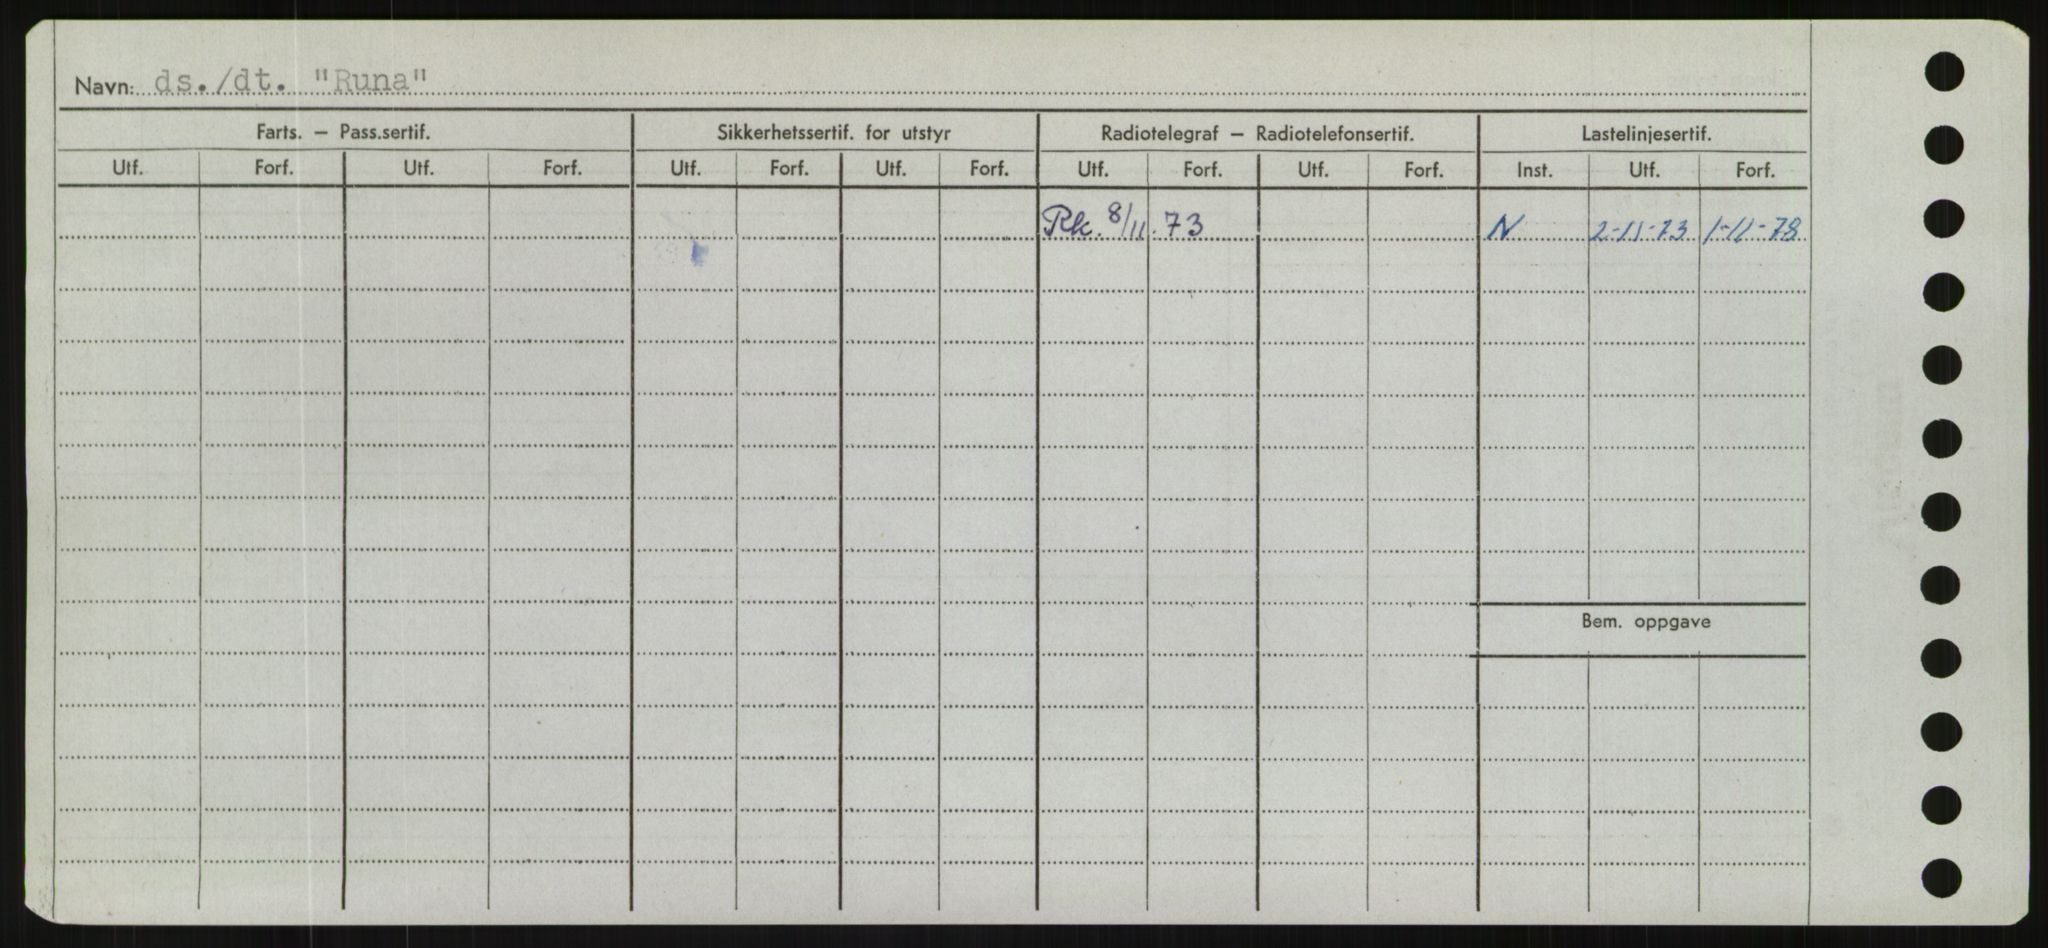 Navn: ds./dt. "Runa"
Farts. – Pass.sertif. Sikkerhetssertif. for utstyr Radiotelegraf – Radiotelefonsertif. Lastelinjesertif.
Utf. Forf. Utf. Forf. Utf. Forf. Utf. Forf. Utf. Forf. Utf. Forf. Inst. Utf. Forf.
Rk. 8/11.73 N 2-11-73 1-11-78
Bem. oppgave